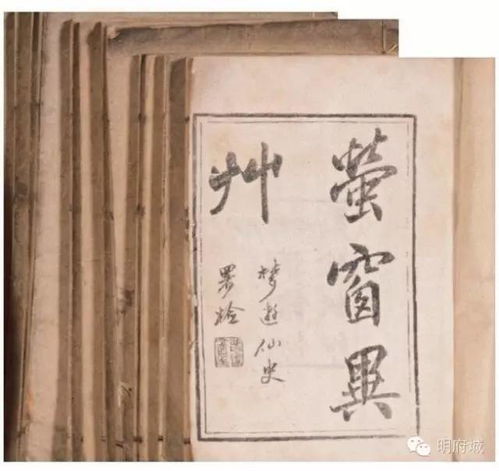 螢窗異
艸
梦遊仙史
署检
明府城